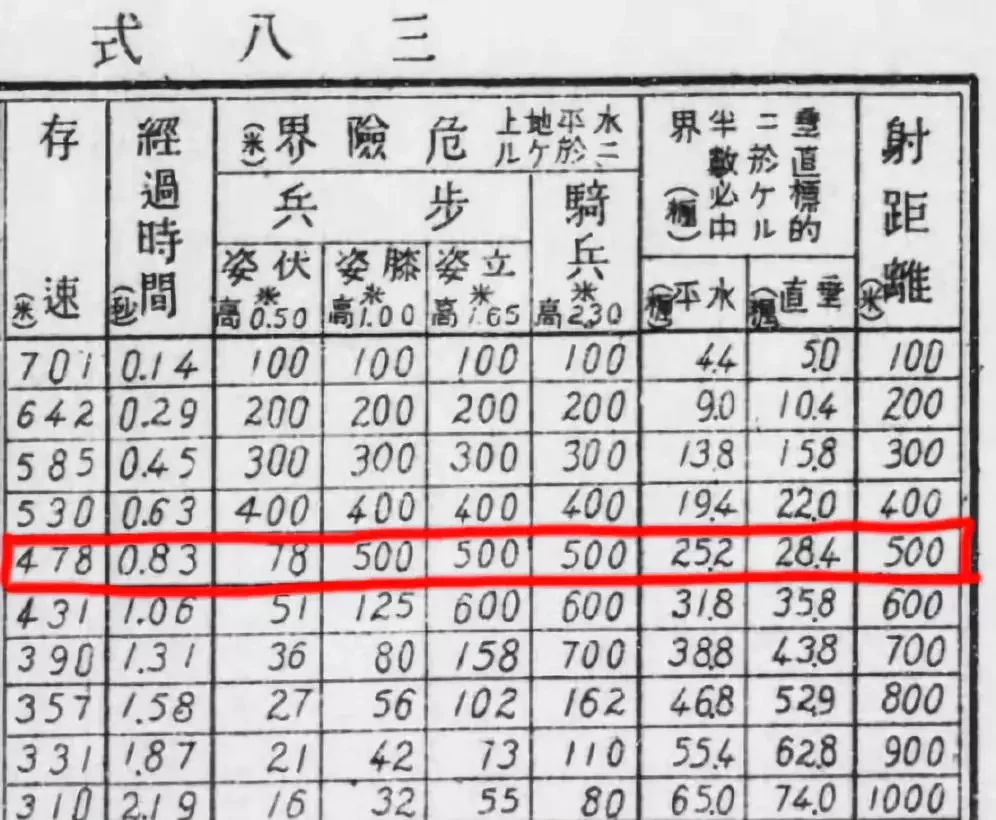 三八式
射距離(米)
垂直標的ニ於ケル半數必中界(糎)
垂直(糎)
水平(糎)
水平地上ニ於ケル
危險界(米)
騎兵
高2.30米
步兵
立姿
高1.65米
膝姿
高1.00米
伏姿
高0.50米
經過時間(秒)
存速(米)
100 5.0 4.4 100 100 100 100 0.14 701
200 10.4 9.0 200 200 200 200 0.29 642
300 15.8 13.8 300 300 300 300 0.45 585
400 22.0 19.4 400 400 400 400 0.63 530
500 28.4 25.2 500 500 500 78 0.83 478
600 35.8 31.8 600 600 125 51 1.06 431
700 43.8 38.8 700 158 80 36 1.31 390
800 52.9 46.8 162 102 56 27 1.58 357
900 62.8 55.4 110 73 42 21 1.87 331
1000 74.0 65.0 80 55 32 16 2.19 310